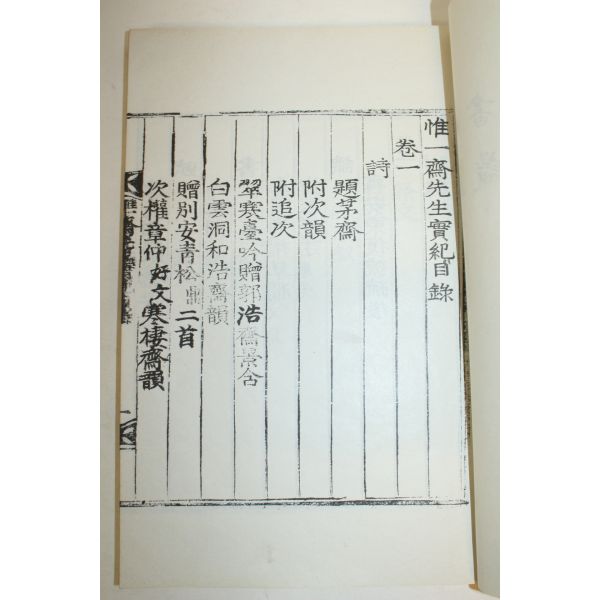 惟一齋先生實紀目錄
卷一
詩
題茅齋
附次韻
附追次
翠寒臺吟贈郭浩齋景含
白雲洞和浩齋韻
贈別安青松二首
次權章仲好文寒棲齋韻